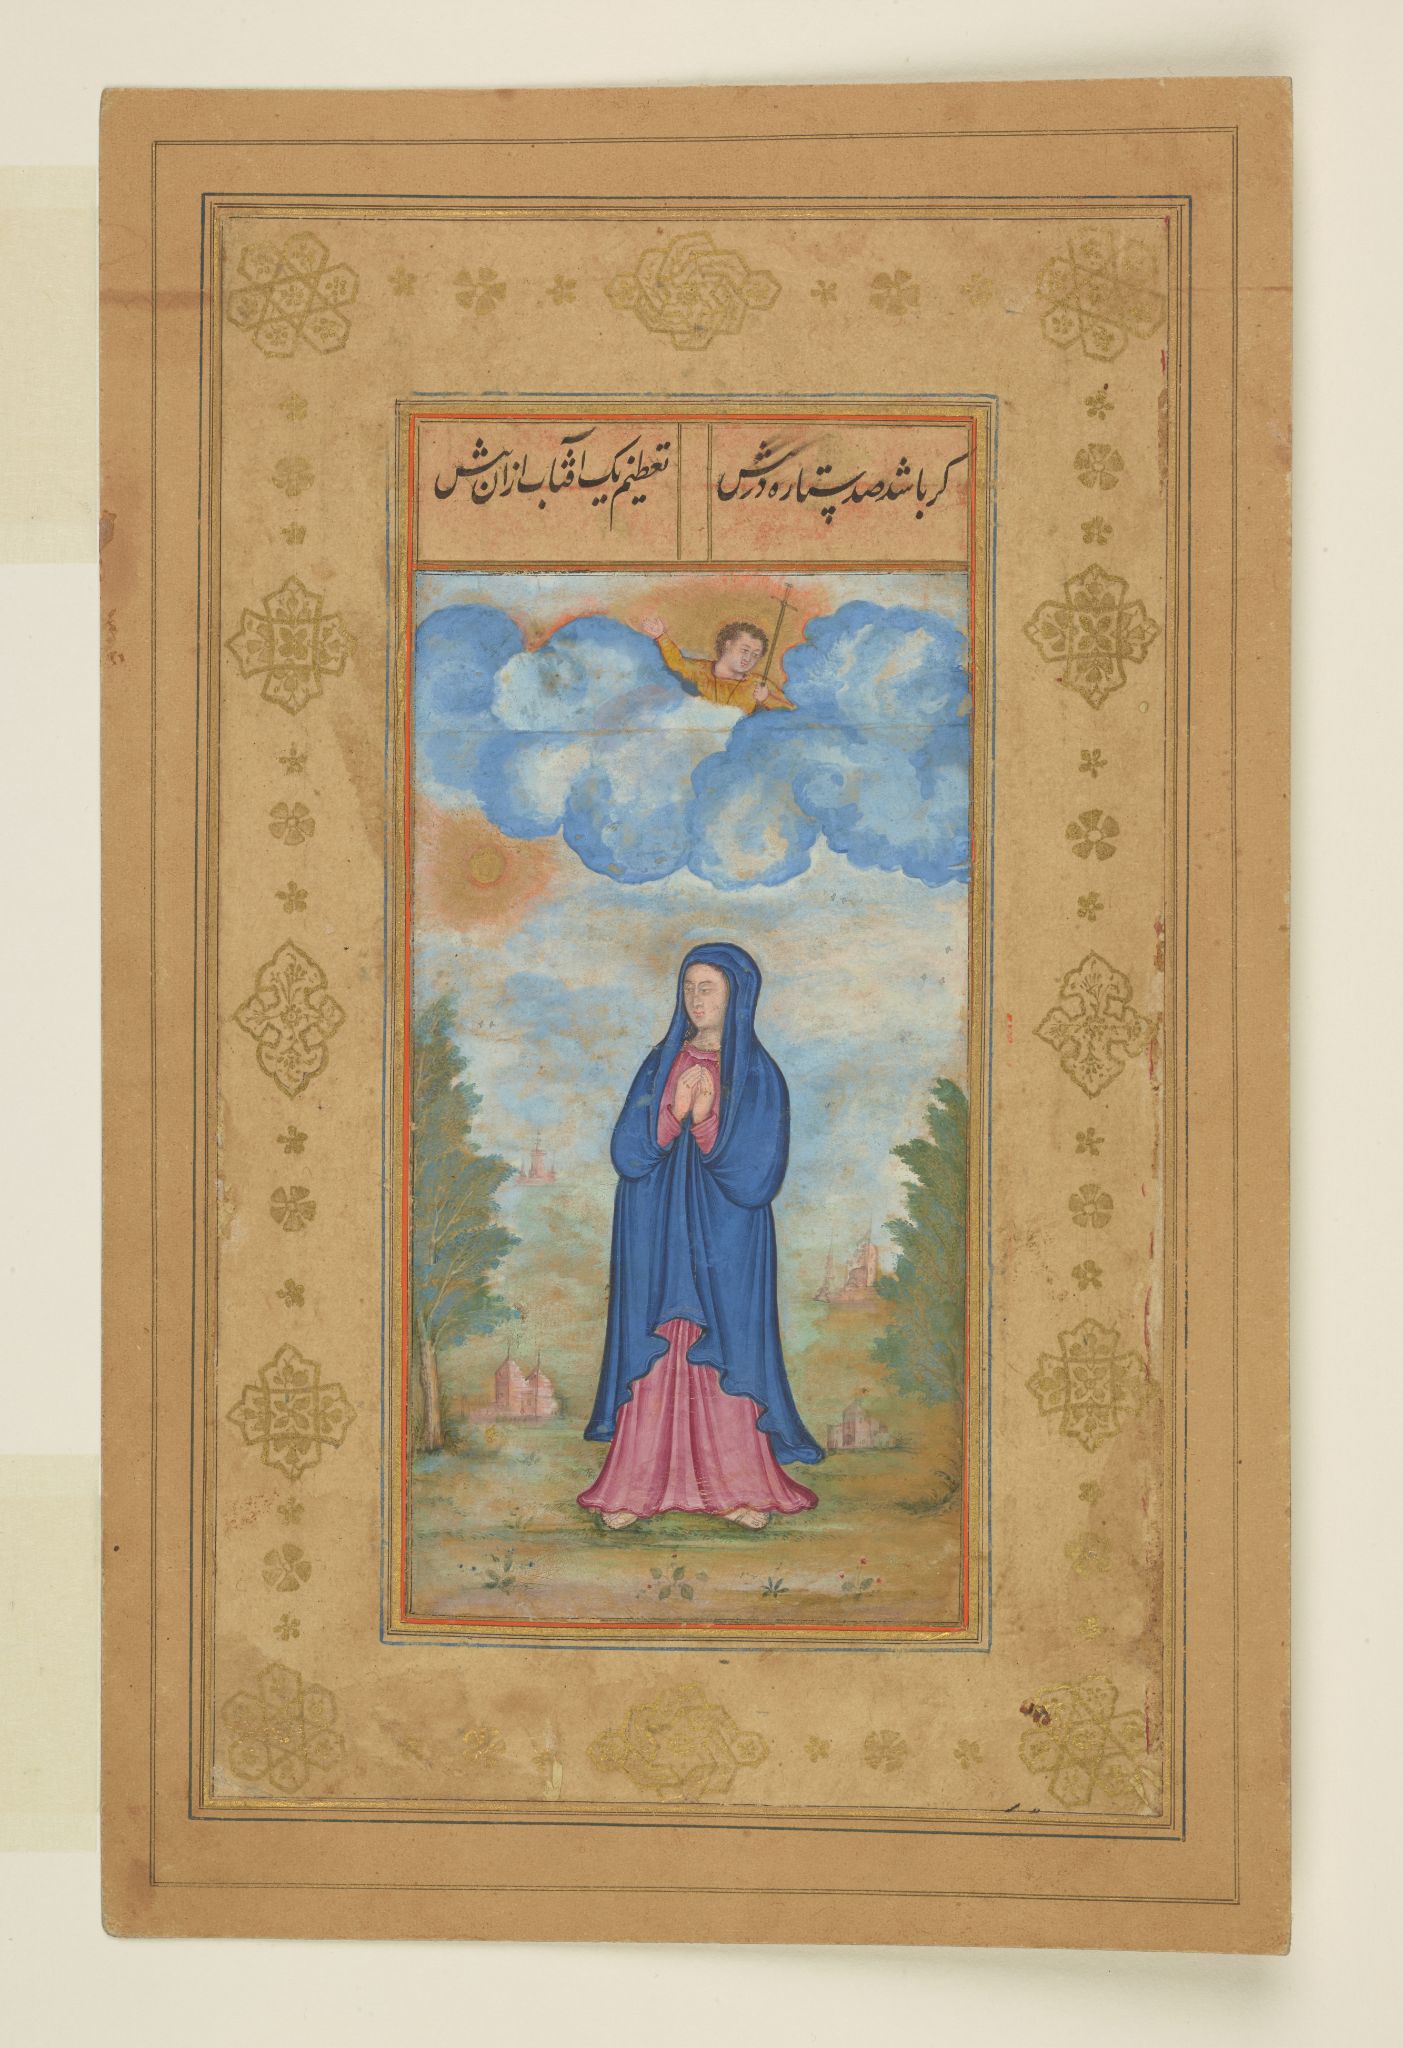 کر باشد صد ستاره در پیش
تعظیم یک آفتاب ازان بیش